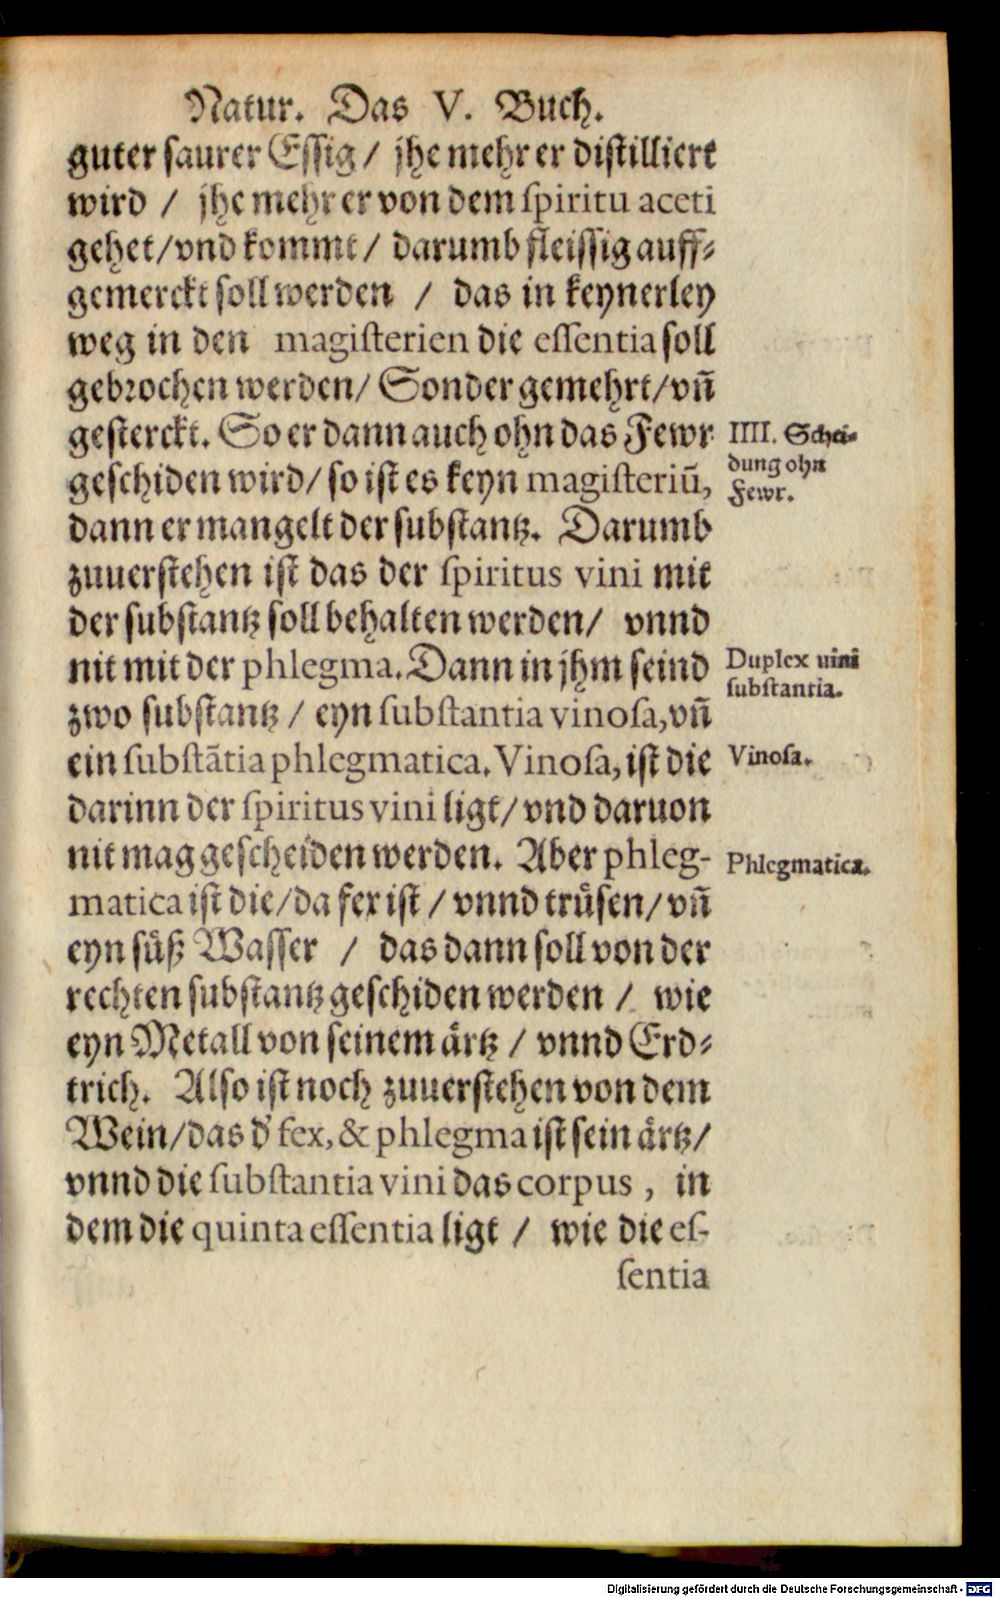 Natur. Das V. Buch.
guter saurer Essig / jhe mehr er distilliert
wird / jhe mehr er von dem spiritu aceti
gehet / vnd kommt / darumb fleissig auff⸗
gemerckt soll werden / das in keynerley
weg in den magisterien die essentia soll
gebrochen werden / Sonder gemehrt / vñ
gesterckt. So er dann auch ohn das Fewr
IIII. Schei⸗
dung ohn
Fewr.
geschiden wird / so ist es keyn magisteriū,
dann er mangelt der substantz. Darumb
zuuerstehen ist das der spiritus vini mit
der substantz soll behalten werden / vnnd
nit mit der phlegma. Dann in jhm seind
Duplex uini
substantia.
zwo substantz / eyn substantia vinosa, vñ
ein substātia phlegmatica. Vinosa, ist die
Vinosa.
darinn der spiritus vini ligt / vnd daruon
nit mag gescheiden werden. Aber phleg-
Phlegmatica.
matica ist die / da fex ist / vnnd trůsen / vñ
eyn sůß Wasser / das dann soll von der
rechten substantz geschiden werden / wie
eyn Metall von seinem årtz / vnnd Erd⸗
trich. Also ist noch zuuerstehen von dem
Wein / das d' fex, & phlegma ist sein årtz /
vnnd die substantia vini das corpus, in
dem die quinta essentia ligt / wie die es-
sentia
Digitalisierung gefördert durch die Deutsche Forschungsgemeinschaft - DFG